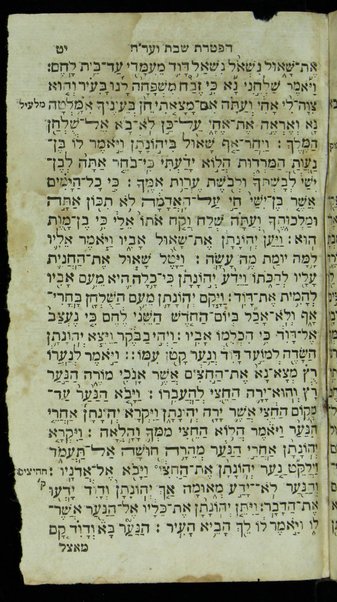 הפטרת שבת וער״ח יט
את־שָׁאוּל נִשְׁאֹל נִשְׁאַל דָּוִד מֵעִמָּדִי עַד־בֵּית לָחֶם:
וַיֹּאמֶר שַׁלְּחֵנִי נָא כִּי זֶבַח מִשְׁפָּחָה לָנוּ בָּעִיר וְהוּא
צִוָּה־לִי אָחִי וְעַתָּה אִם־מָצָאתִי חֵן בְּעֵינֶיךָ אִמָּלְטָה מלעיל
נָּא וְאֶרְאֶה אֶת־אֶחָי עַל־כֵּן לֹא־בָא אֶל־שֻׁלְחַן
הַמֶּלֶךְ: וַיִּחַר־אַף שָׁאוּל בִּיהוֹנָתָן וַיֹּאמֶר לוֹ בֶּן־
נַעֲוַת הַמַּרְדּוּת הֲלוֹא יָדַעְתִּי כִּי־בֹחֵר אַתָּה לְבֶן־
יִשַׁי לְבָשְׁתְּךָ וּלְבֹשֶׁת עֶרְוַת אִמֶּךָ: כִּי כָל־הַיָּמִים
אֲשֶׁר בֶּן־יִשַׁי חַי עַל־הָאֲדָמָה לֹא תִכּוֹן אַתָּה
וּמַלְכוּתֶךָ וְעַתָּה שְׁלַח וְקַח אֹתוֹ אֵלַי כִּי בֶן־מָוֶת
הוּא: וַיַּעַן יְהוֹנָתָן אֶת־שָׁאוּל אָבִיו וַיֹּאמֶר אֵלָיו
לָמָּה יוּמַת מֶה עָשָׂה: וַיָּטֶל שָׁאוּל אֶת־הַחֲנִית
עָלָיו לְהַכֹּתוֹ וַיֵּדַע יְהוֹנָתָן כִּי־כָלָה הִיא מֵעִם אָבִיו
לְהָמִית אֶת־דָּוִד: וַיָּקָם יְהוֹנָתָן מֵעִם הַשֻּׁלְחָן בָּחֳרִי־
אָף וְלֹא־אָכַל בְּיוֹם־הַחֹדֶשׁ הַשֵּׁנִי לֶחֶם כִּי נֶעְצַב
אֶל־דָּוִד כִּי הִכְלִמוֹ אָבִיו: וַיְהִי בַבֹּקֶר וַיֵּצֵא יְהוֹנָתָן
הַשָּׂדֶה לְמוֹעֵד דָּוִד וְנַעַר קָטֹן עִמּוֹ: וַיֹּאמֶר לְנַעֲרוֹ
רֻץ מְצָא־נָא אֶת־הַחִצִּים אֲשֶׁר אָנֹכִי מוֹרֶה הַנַּעַר
רָץ וְהוּא־יָרָה הַחֵצִי לְהַעֲבִרוֹ: וַיָּבֹא הַנַּעַר עַד־
מְקוֹם הַחֵצִי אֲשֶׁר יָרָה יְהוֹנָתָן וַיִּקְרָא יְהוֹנָתָן אַחֲרֵי
הַנַּעַר וַיֹּאמֶר הֲלוֹא הַחֵצִי מִמְּךָ וָהָלְאָה: וַיִּקְרָא
יְהוֹנָתָן אַחֲרֵי הַנַּעַר מְהֵרָה חוּשָׁה אַל־תַּעֲמֹד
וַיְלַקֵּט נַעַר יְהוֹנָתָן אֶת־הַחִצִּי וַיָּבֹא אֶל־אֲדֹנָיו: החיצים
וְהַנַּעַר לֹא־יָדַע מְאוּמָה אַךְ יְהוֹנָתָן וְדָוִד יָדְעוּ ק׳
אֶת־הַדָּבָר: וַיִּתֵּן יְהוֹנָתָן אֶת־כֵּלָיו אֶל־הַנַּעַר אֲשֶׁר־
לוֹ וַיֹּאמֶר לוֹ לֵךְ הָבֵיא הָעִיר: הַנַּעַר בָּא וְדָוִד קָם
מאצל